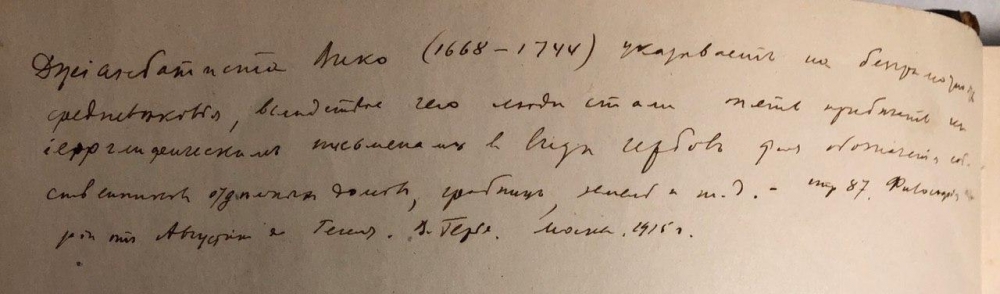 Джіамбатиста Вико (1668–1744) указываетъ на безграмотность
средневѣковья, вслѣдствіе чего люди стали опять прибѣгать къ
іероглифическимъ письменамъ в видѣ гербовъ для обозначенія соб-
ственниковъ отдѣльныхъ домовъ, гробницъ, земель и т.д. – стр 87.
рія отъ Августина до Гегеля. В. Герье. Москва. 1915 г.